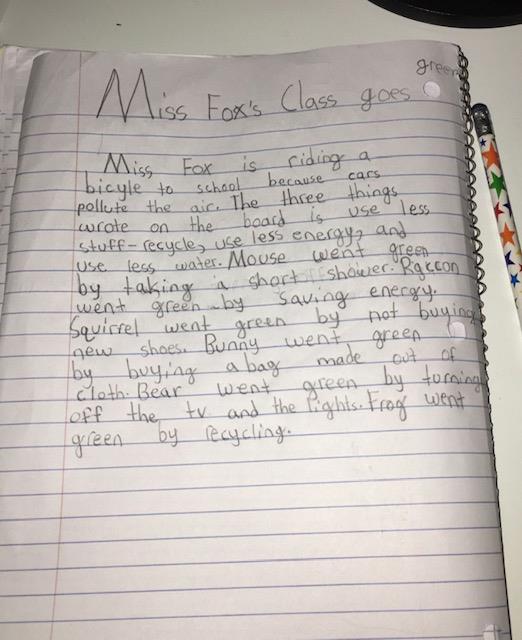 Miss Fox's Class goes green
Miss Fox is riding a
bicyle to school because cars
pollute the air. The three things
wrote on the board is use less
stuff-recycle, use less energy, and
use less water. Mouse went green
by taking a short shower. Raccon
went green by saving energy.
Squirrel went green by not buying
new shoes. Bunny went green
by buying a bag made out of
cloth. Bear went green by turning
off the tv and the lights. Frog went
green by recycling.